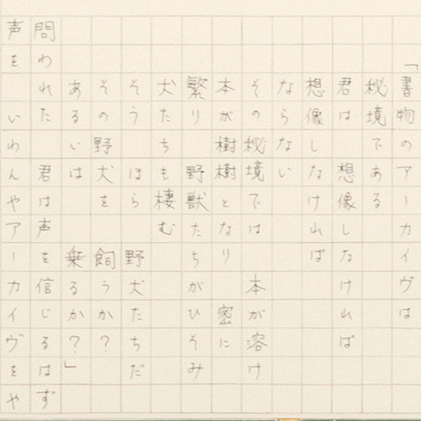 「書物のアーカイヴは
秘境である
君は　想像しなければ
想像しなければ
ならない
その秘境では　本が溶け
本が樹樹となり　密に
繁り　野獣たちがひそみ
犬たちも棲む
そう　ほら　野犬たちだ
その野犬を　飼うか？
あるいは　乗るか？」
問われた　君は声を信じるはず
声を　いわんやアーカイヴをや